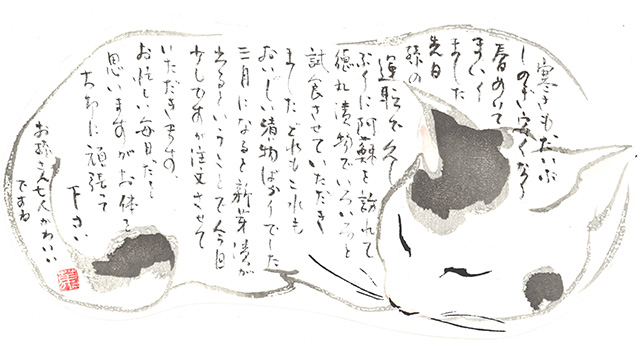 寒さもだいぶ
しのぎ安くなり
春めいて
まいり
ました
先日
孫の
運転で久し
ぶりに阿蘇を訪れて
徳丸漬物でいろいろと
試食させていただき
ました どれもこれも
おいしい漬物ばかりでした
三月になると新芽漬が
出るということで今回
少しですが注文させて
いただきます
お忙しい毎日だと
思いますがお体を
大切に頑張って
下さい
お孫さん七人かわいい
ですね